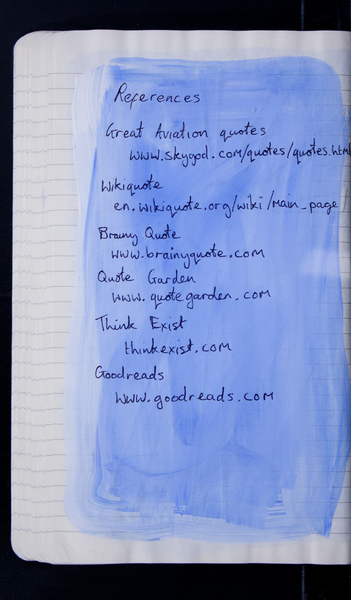 References
Great Aviation quotes
www.skygod.com/quotes/quotes.html
Wikiquote
en.wikiquote.org/wiki/Main_page
Brainy Quote
www.brainyquote.com
Quote Garden
www.quotegarden.com
Think Exist
thinkexist.com
Goodreads
www.goodreads.com